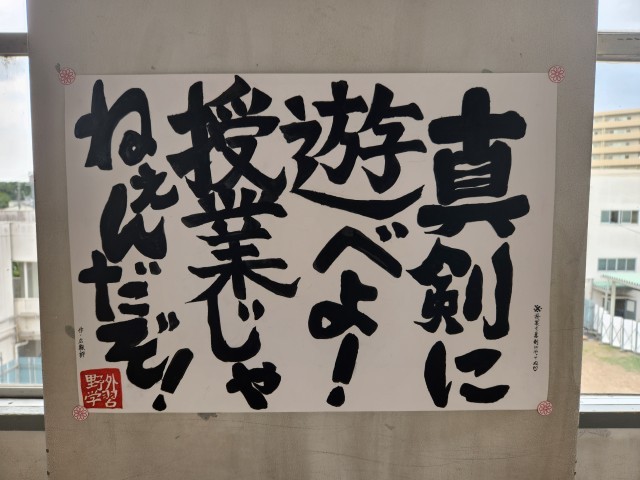 真剣に
遊べよ！
授業じゃ
ねぇんだぞ！
※授業も真剣にやってね♡
野外
学習